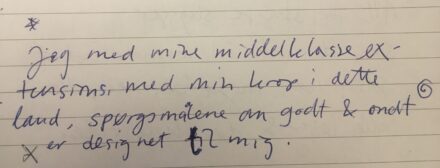 *
Jeg med mine middelklasse ex-
tensions, med min krop i dette
land, spørgsmålene om godt & ondt
x er designet til mig.